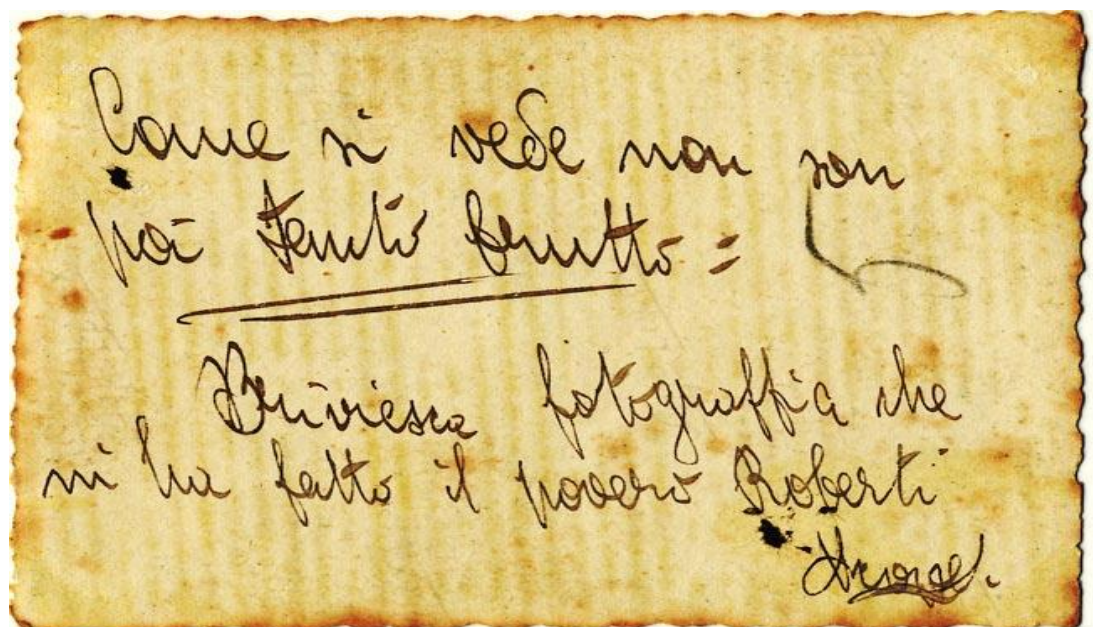 Come si vede non son
poi tanto brutto =
Briviesca fotograffia che
mi ha fatto il povero Roberti